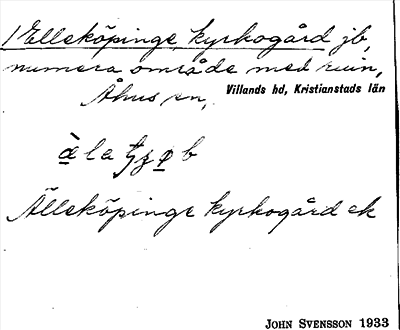 1 Elleköpinge kyrkogård jb,
numera område med ruin,
Åhus sn, Villands hd, Kristianstads län
Älleköpinge kyrkogård ek
JOHN SVENSSON 1933